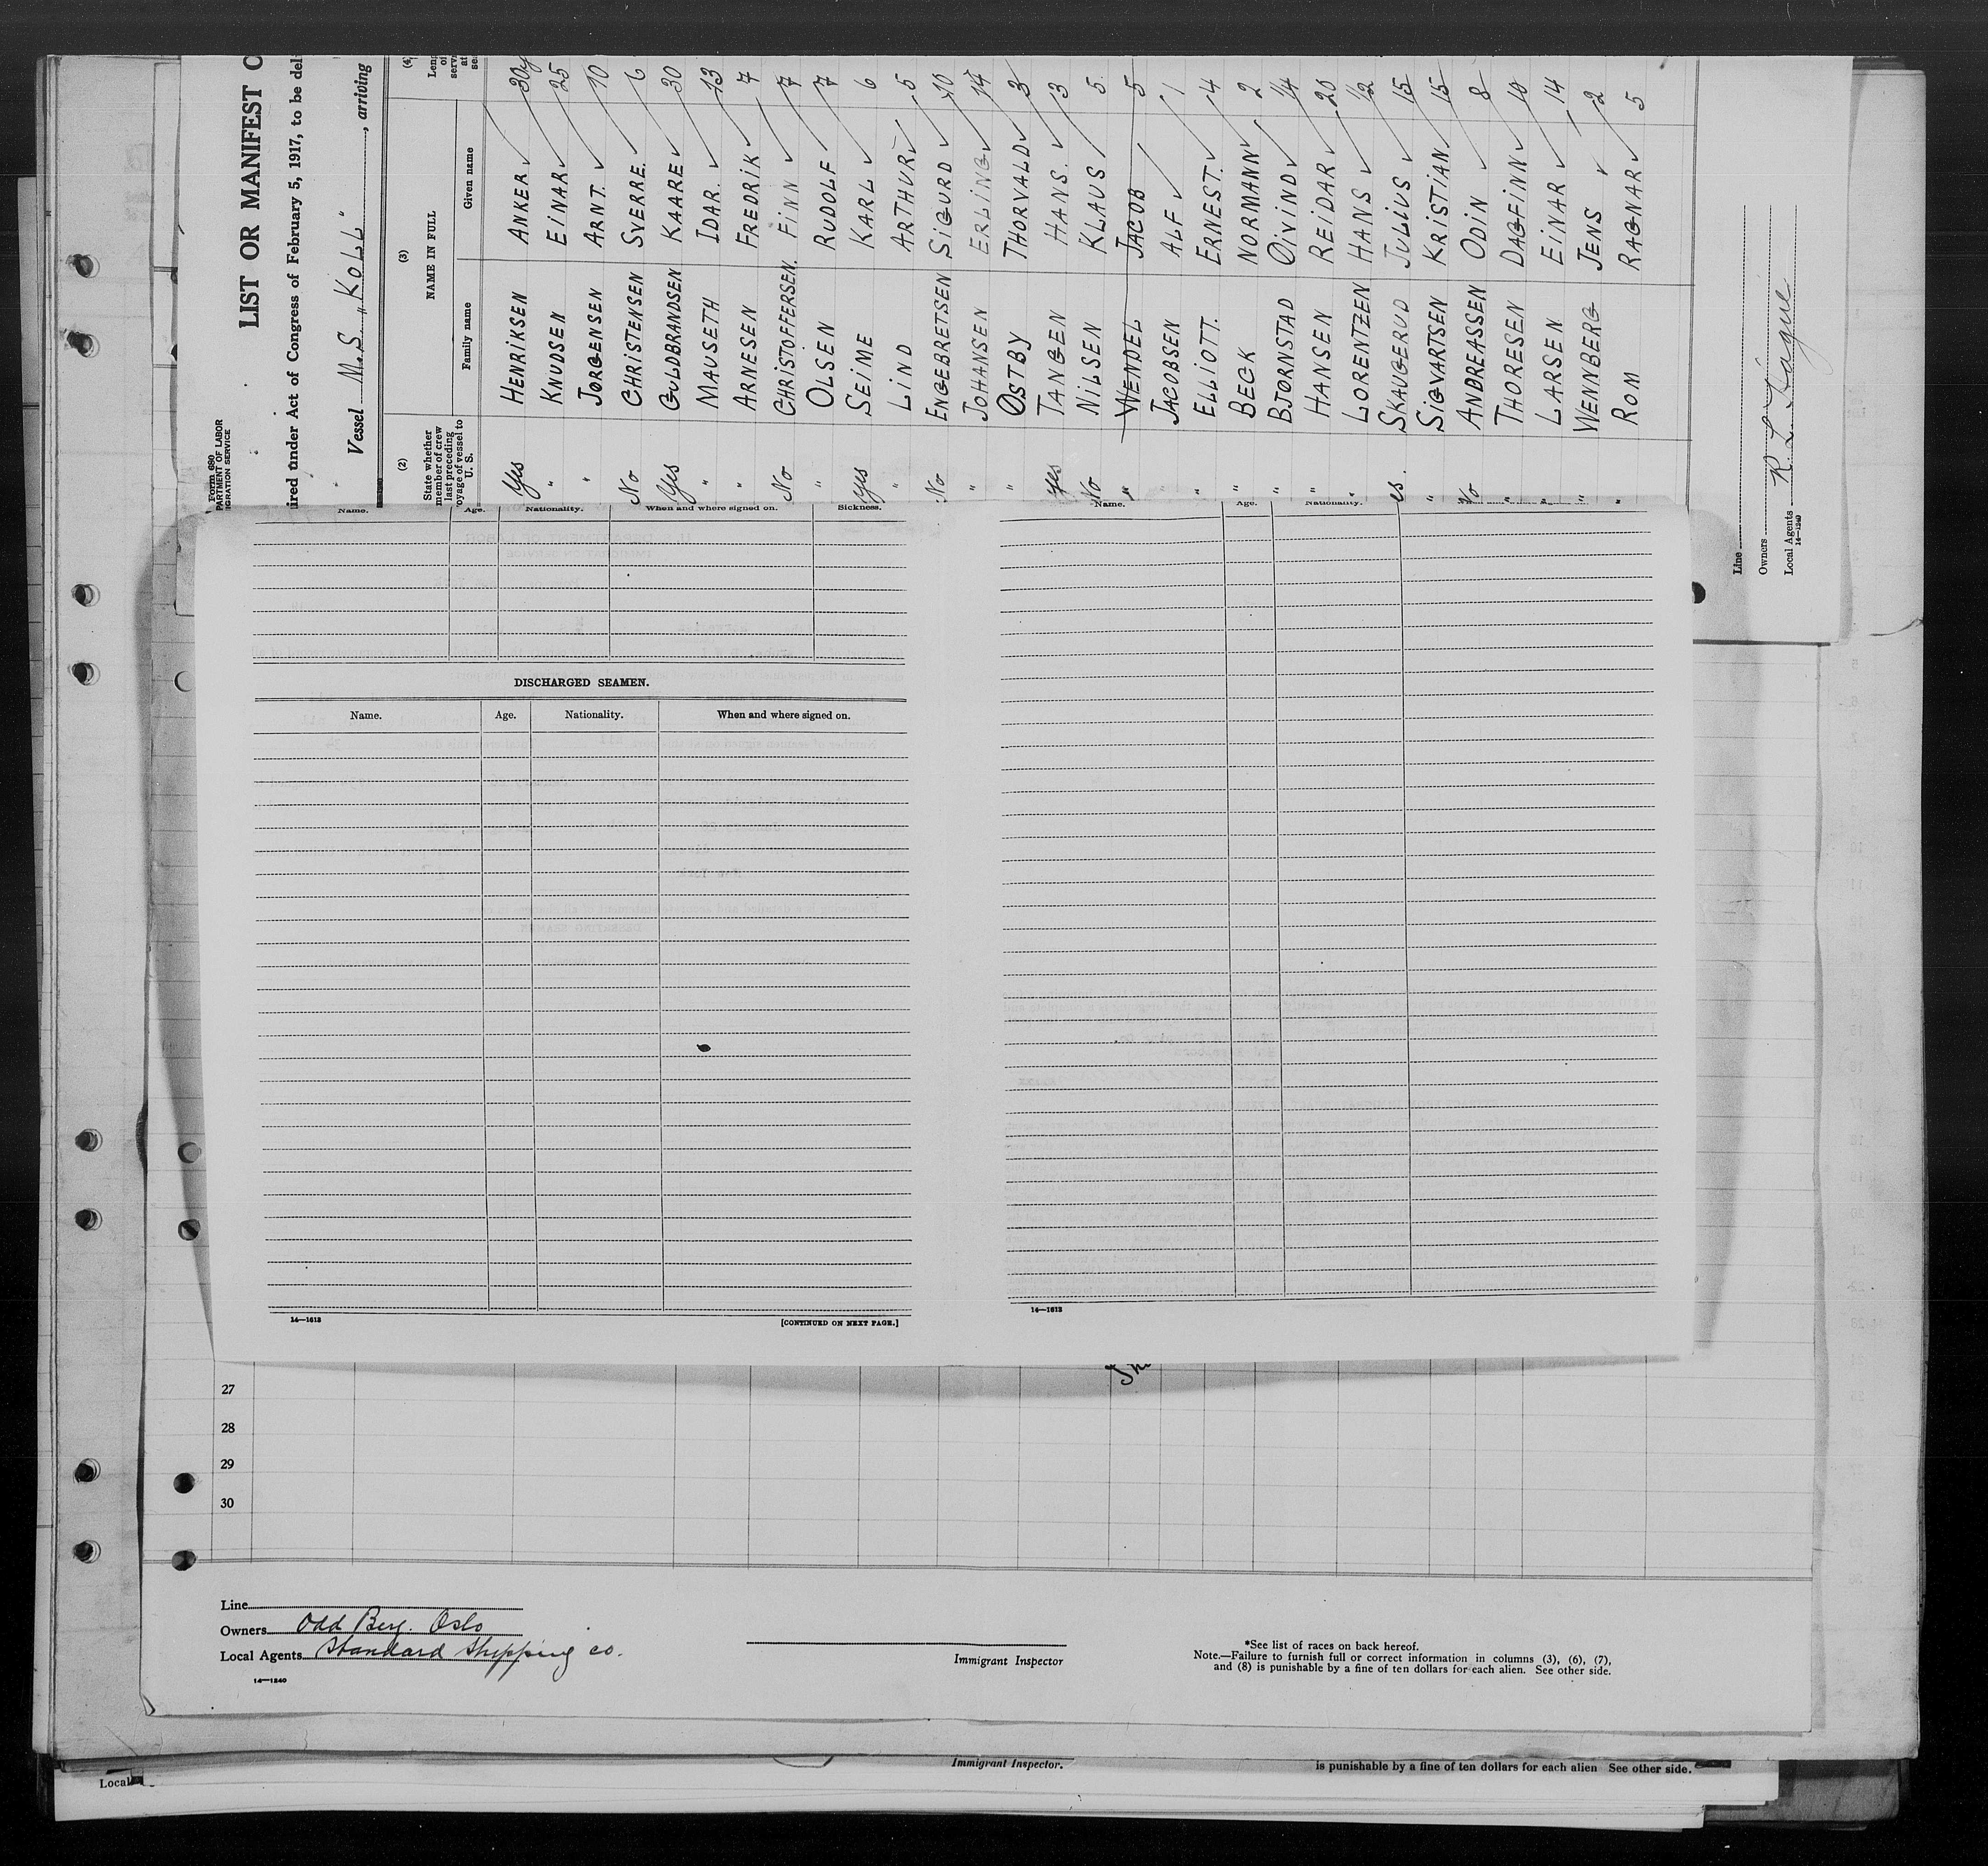 Form 680
LIST OR MANIFEST
under Act of Congress of February 5, 1917, to be
Vessel M.S. "KOLL", arriving
(2) (3) (4)
State whether member of crew last preceding voyage of vessel to U. S.
NAME IN FULL
Family name Given name
Yes HENRIKSEN ANKER 30y
" KNUDSEN EINAR 25
" JORGENSEN ARNT. 10
No CHRISTENSEN SVERRE. 6
Yes GULDBRANDSEN KAARE 30
" MAUSETH IDAR. 13
" ARNESEN FREDRIK 7
No CHRISTOFFERSEN. FINN 7
" OLSEN RUDOLF 7
Yes SEIME KARL 6
" LIND ARTHUR 5
No ENGEBRETSEN SIGURD 10
" JOHANSEN ERLING 14
" ØSTBY THORVALD 3
Yes TANGEN HANS. 3
No NILSEN KLAUS 5
" WENDEL JACOB 5
JACOBSEN ALF 1
" ELLIOTT. ERNEST. 4
" BECK NORMANN 2
" BJORNSTAD ØIVIND 1/4
" HANSEN REIDAR 20
" LORENTZEN HANS 1/2
es. SKAUGERUD JULIUS 15
" SIGVARTSEN KRISTIAN 15
No ANDREASSEN ODIN 8
" THORESEN DAGFINN 10
" LARSEN EINAR 14
" WENNBERG JENS 2
" ROM RAGNAR 5
Line
Owners
Local Agents
14—1240
Name. Age. Nationality. When and where signed on. Sickness.
DISCHARGED SEAMEN.
Name. Age. Nationality. When and where signed on.
14—1613
[CONTINUED ON NEXT PAGE.]
Name. Age. Nationality.
14—1613
27
28
29
30
Line
Owners Odd Berg. Oslo
Local Agents Standard Shipping co.
14—1240
Immigrant Inspector
*See list of races on back hereof.
Note.—Failure to furnish full or correct information in columns (3), (6), (7),
and (8) is punishable by a fine of ten dollars for each alien. See other side.
Local
Immigrant Inspector.
is punishable by a fine of ten dollars for each alien See other side.